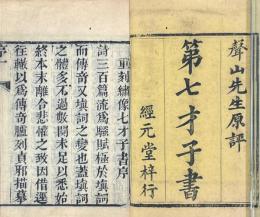 聲山先生原評
第七才子書
經元堂梓行
重刻繡像七才子書序
詩三百篇流為騷賦極於填詞
而傳奇又填詞之變也蓋填詞
之體多不過數闋未足以悉始
終本末離合悲懽之致因借逕
往轍以為傳奇臚列貞邪描摹